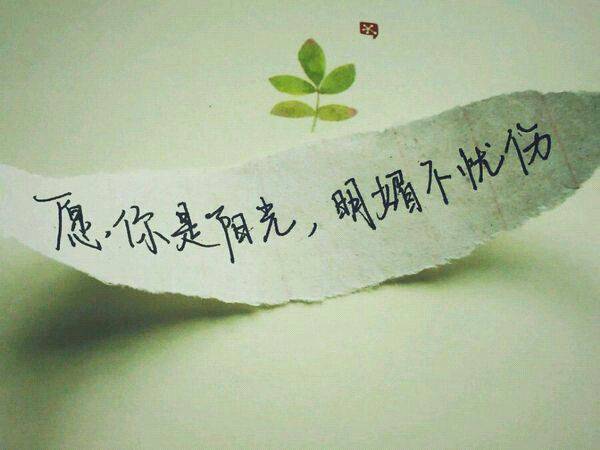 愿你是阳光，明媚不忧伤